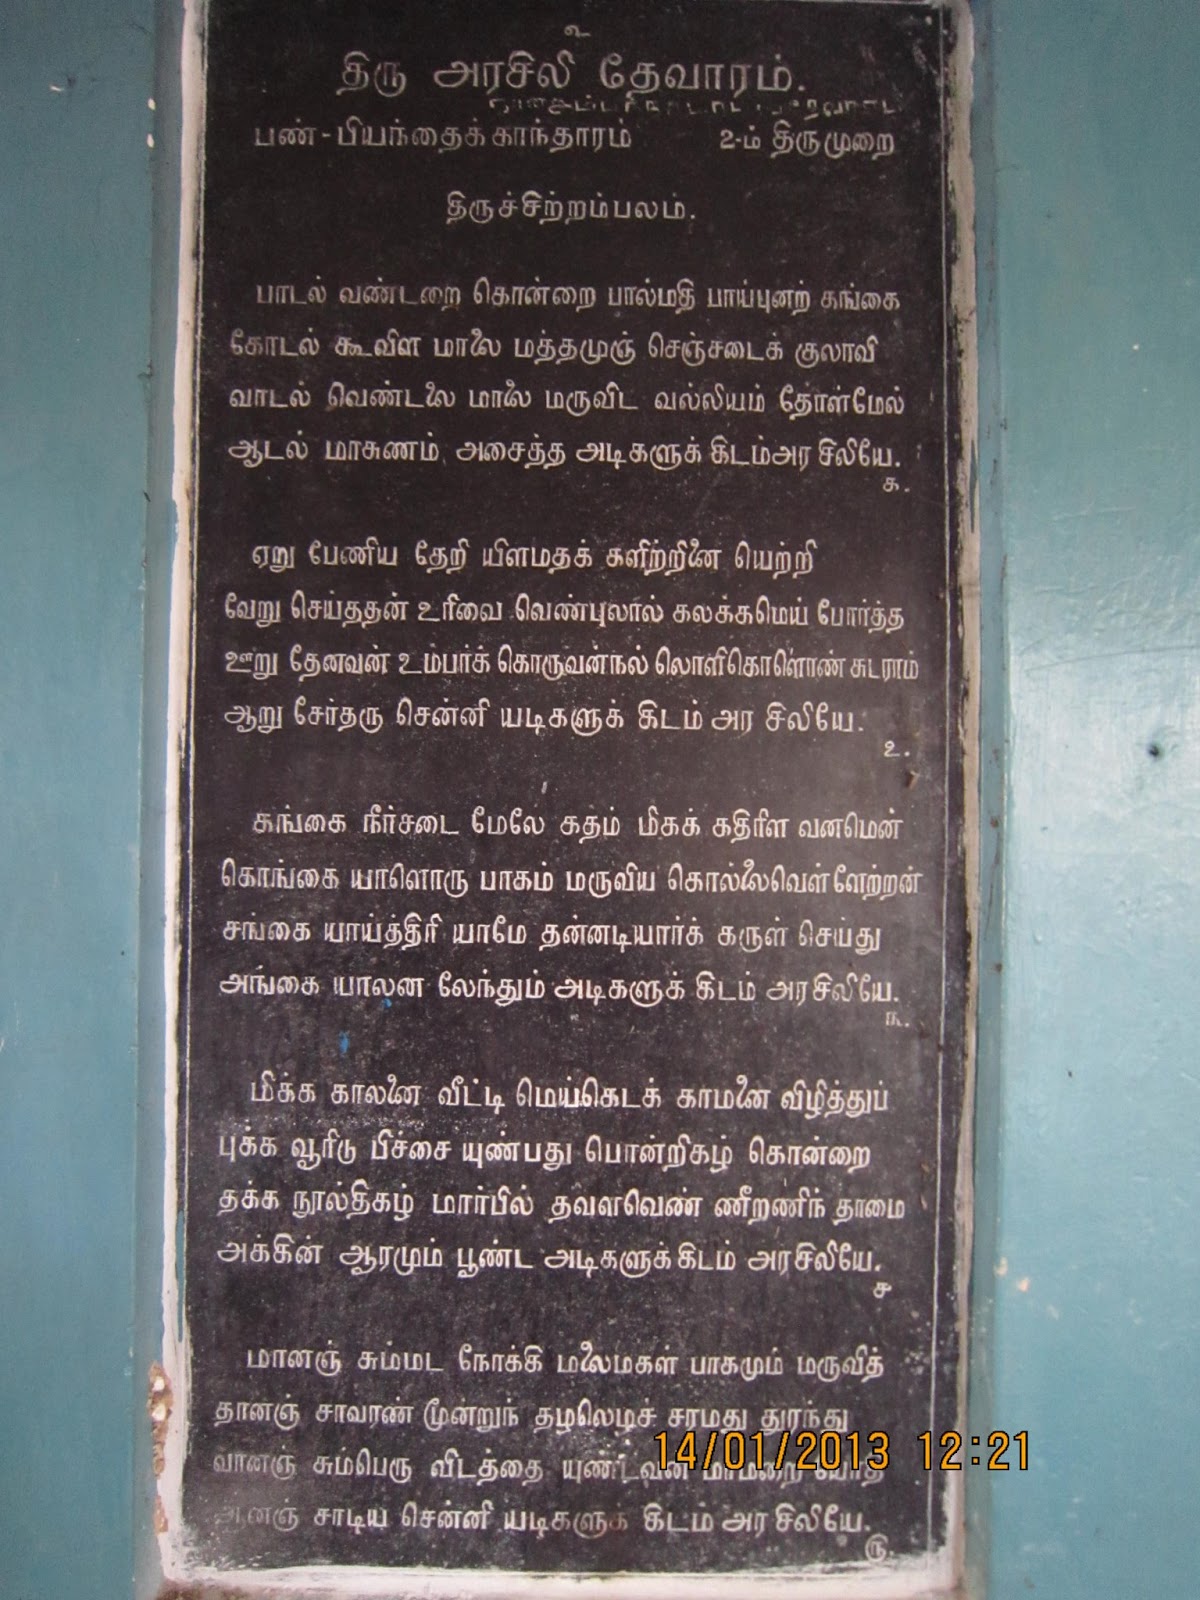 ௨
திரு அரசிலி தேவாரம்.
பண் - பியந்தைக் காந்தாரம் 2-ம் திருமுறை
திருச்சிற்றம்பலம்.
பாடல் வண்டறை கொன்றை பால்மதி பாய்புனற் கங்கை
கோடல் கூவிள மாலை மத்தமுஞ் செஞ்சடைக் குலாவி
வாடல் வெண்டலை மாலை மருவிட வல்லியம் தோள்மேல்
ஆடல் மாசுணம் அசைத்த அடிகளுக் கிடம்அர சிலியே.
க.
ஏறு பேணிய தேறி யிளமதக் களிற்றினை யெற்றி
வேறு செய்ததன் உரிவை வெண்புலால் கலக்கமெய் போர்த்த
ஊறு தேனவன் உம்பர்க் கொருவன்நல் லொளிகொளொண் சுடராம்
ஆறு சேர்தரு சென்னி யடிகளுக் கிடம் அர சிலியே.
உ.
கங்கை நீர்சடை மேலே கதம் மிகக் கதிரிள வனமென்
கொங்கை யாளொரு பாகம் மருவிய கொல்லைவெள் ளேற்றன்
சங்கை யாய்த்திரி யாமே தன்னடியார்க் கருள் செய்து
அங்கை யாலன லேந்தும் அடிகளுக் கிடம் அரசிலியே.
௩.
மிக்க காலனை வீட்டி மெய்கெடக் காமனை விழித்துப்
புக்க வூரிடு பிச்சை யுண்பது பொன்றிகழ் கொன்றை
தக்க நூல்திகழ் மார்பில் தவளவெண் ணீறணிந் தாமை
அக்கின் ஆரமும் பூண்ட அடிகளுக்கிடம் அரசிலியே.
௪
மானஞ் சும்மட நோக்கி மலைமகள் பாகமும் மருவித்
தானஞ் சாவாண் மூன்றுந் தழலெழச் சரமது துரந்து
வானஞ் சும்பெரு விடத்தை யுண்டவன் மாமறை
ஆனஞ் சாடிய சென்னி யடிகளுக் கிடம் அர சிலியே.
௫
14/01/2013 12:21